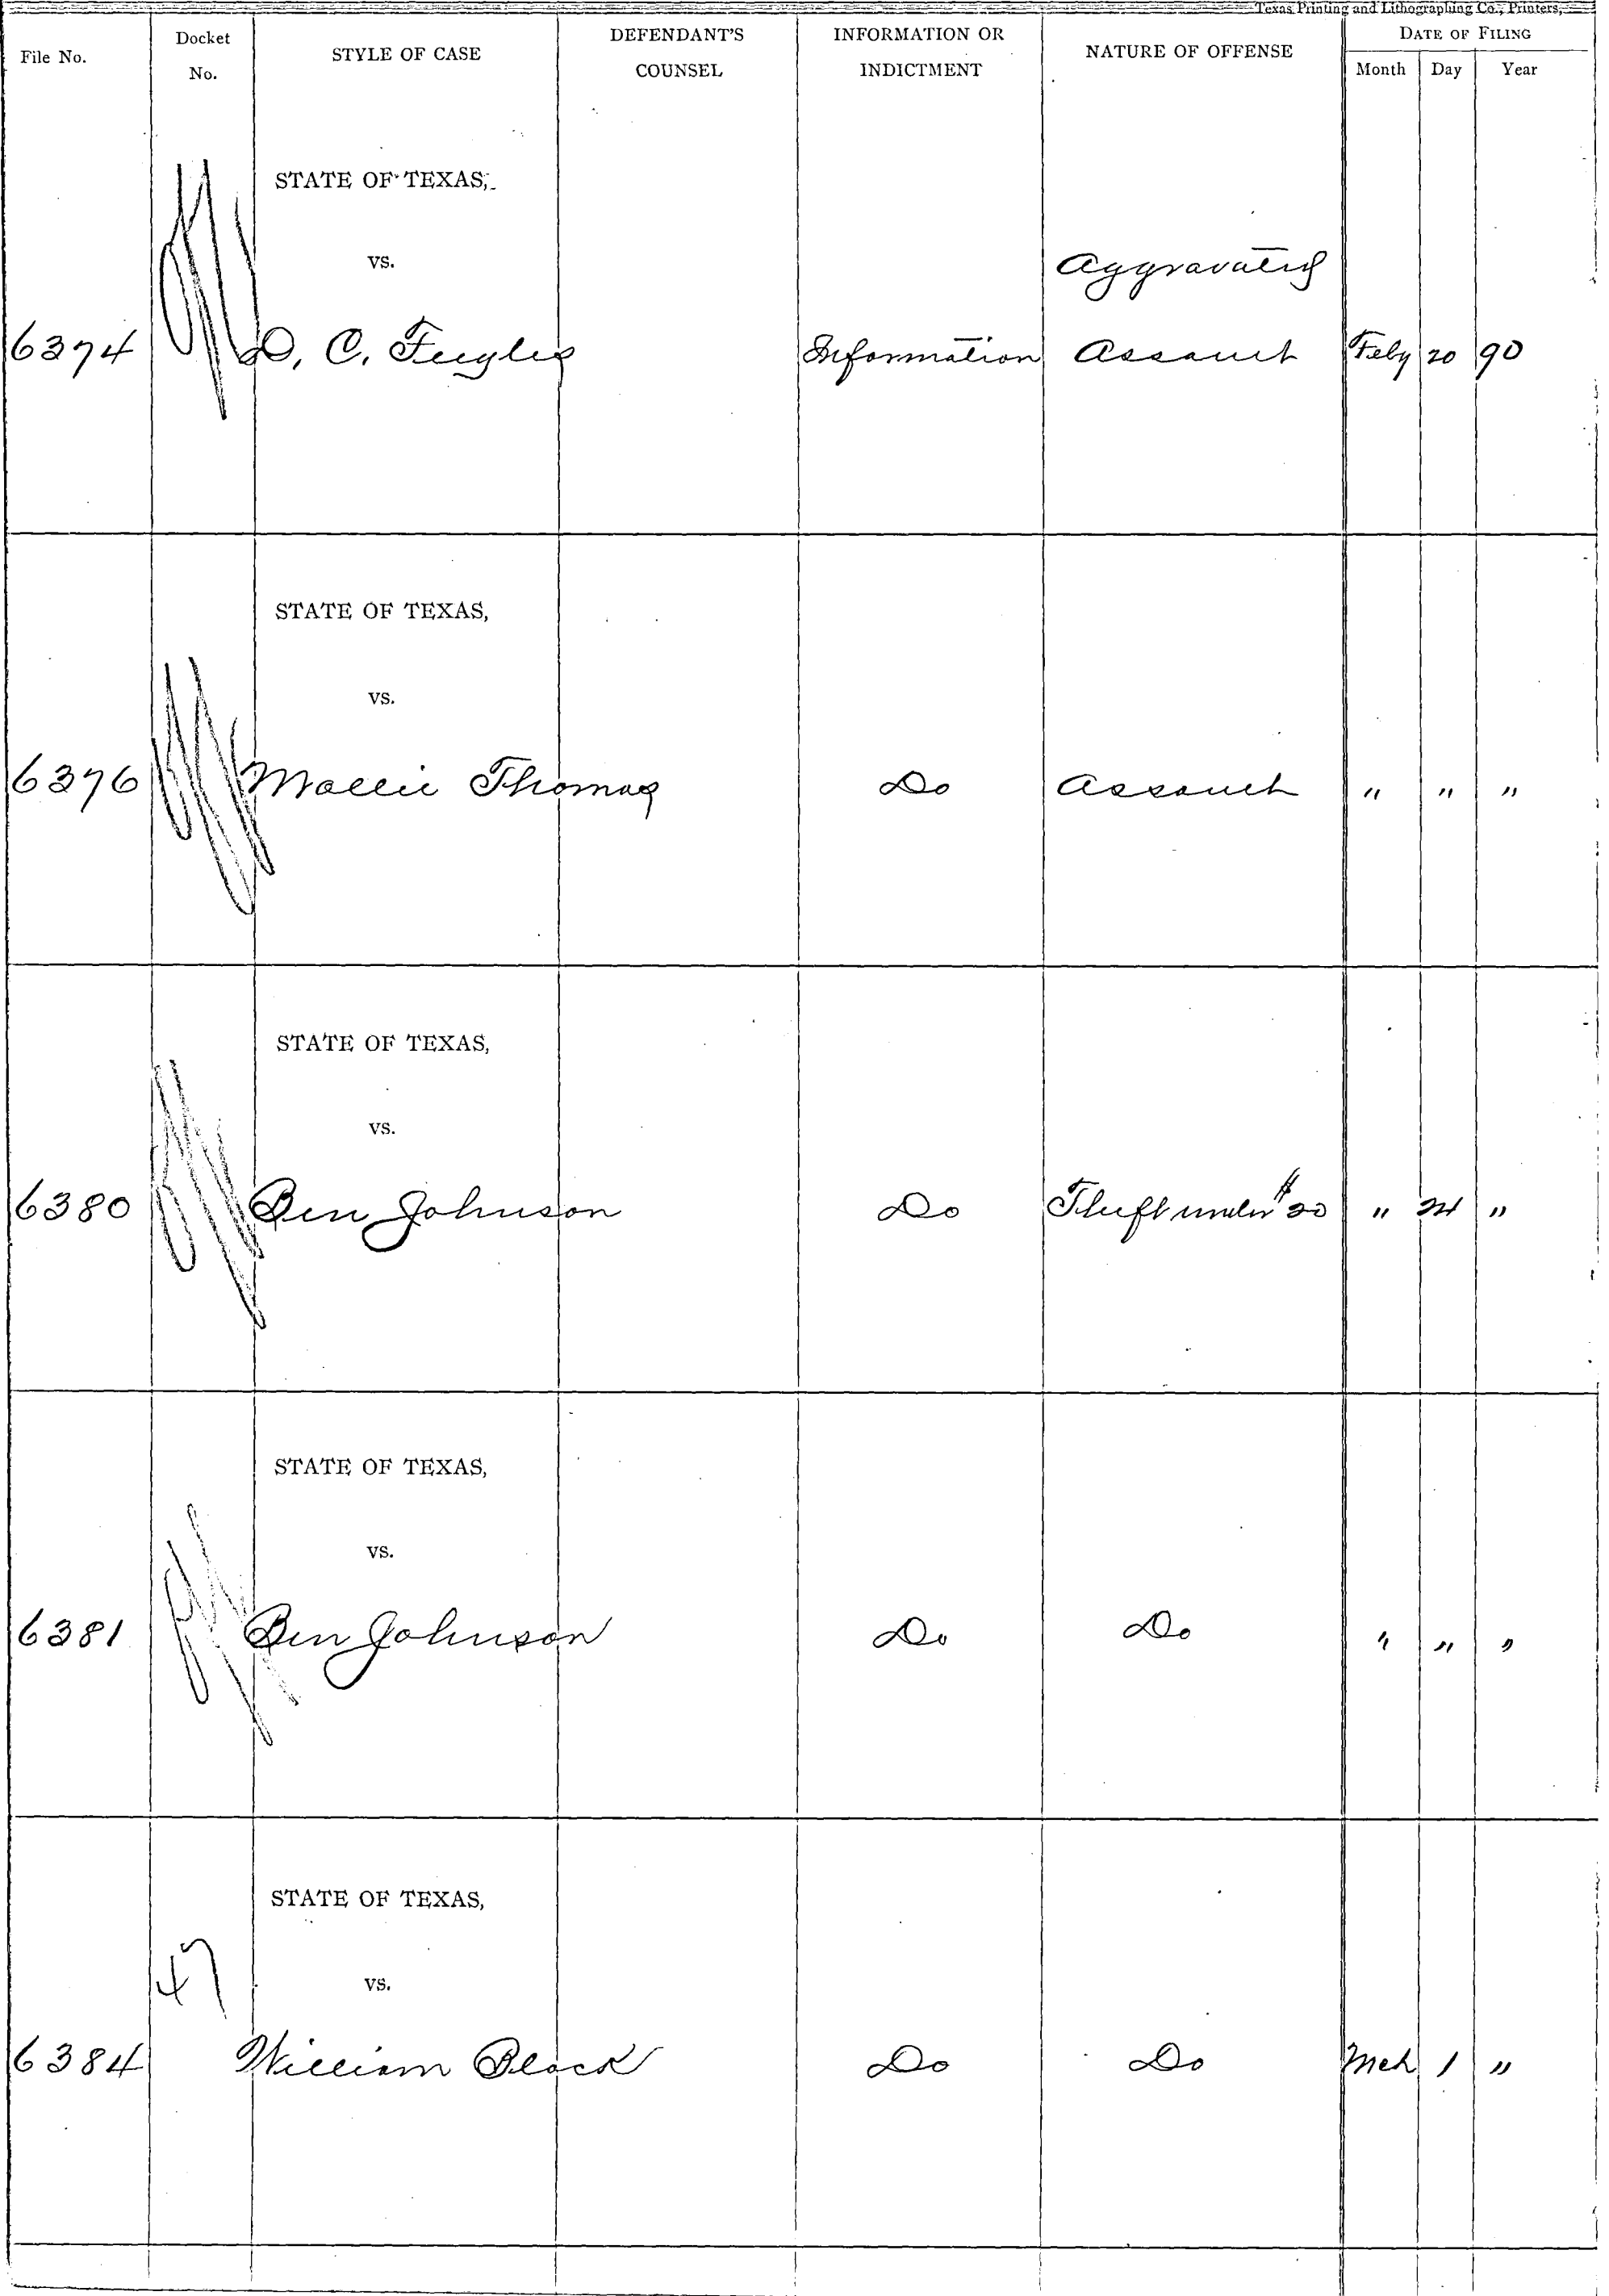 Texas Printing and Lithographing Co., Printers,
File No. Docket No. STYLE OF CASE DEFENDANT'S COUNSEL INFORMATION OR INDICTMENT NATURE OF OFFENSE DATE OF FILING
Month Day Year
STATE OF TEXAS,
vs.
Aggravated
6374 D, C, Information Assault Feby 20 90
STATE OF TEXAS,
vs.
6376 Mollie Thomas Do Assault " " "
STATE OF TEXAS,
vs.
6380 Ben Johnson Do Theft under $20 " 24 "
STATE OF TEXAS,
vs.
6381 Ben Johnson Do Do " " "
STATE OF TEXAS,
47
vs.
6384 William Black Do Do Mch 1 "